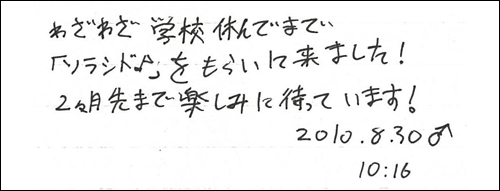 わざわざ 学校 休んでまで
「ソラシド♪」をもらいに来ました!
2ヶ月先まで楽しみに待っています!
2010.8.30♂
10:16